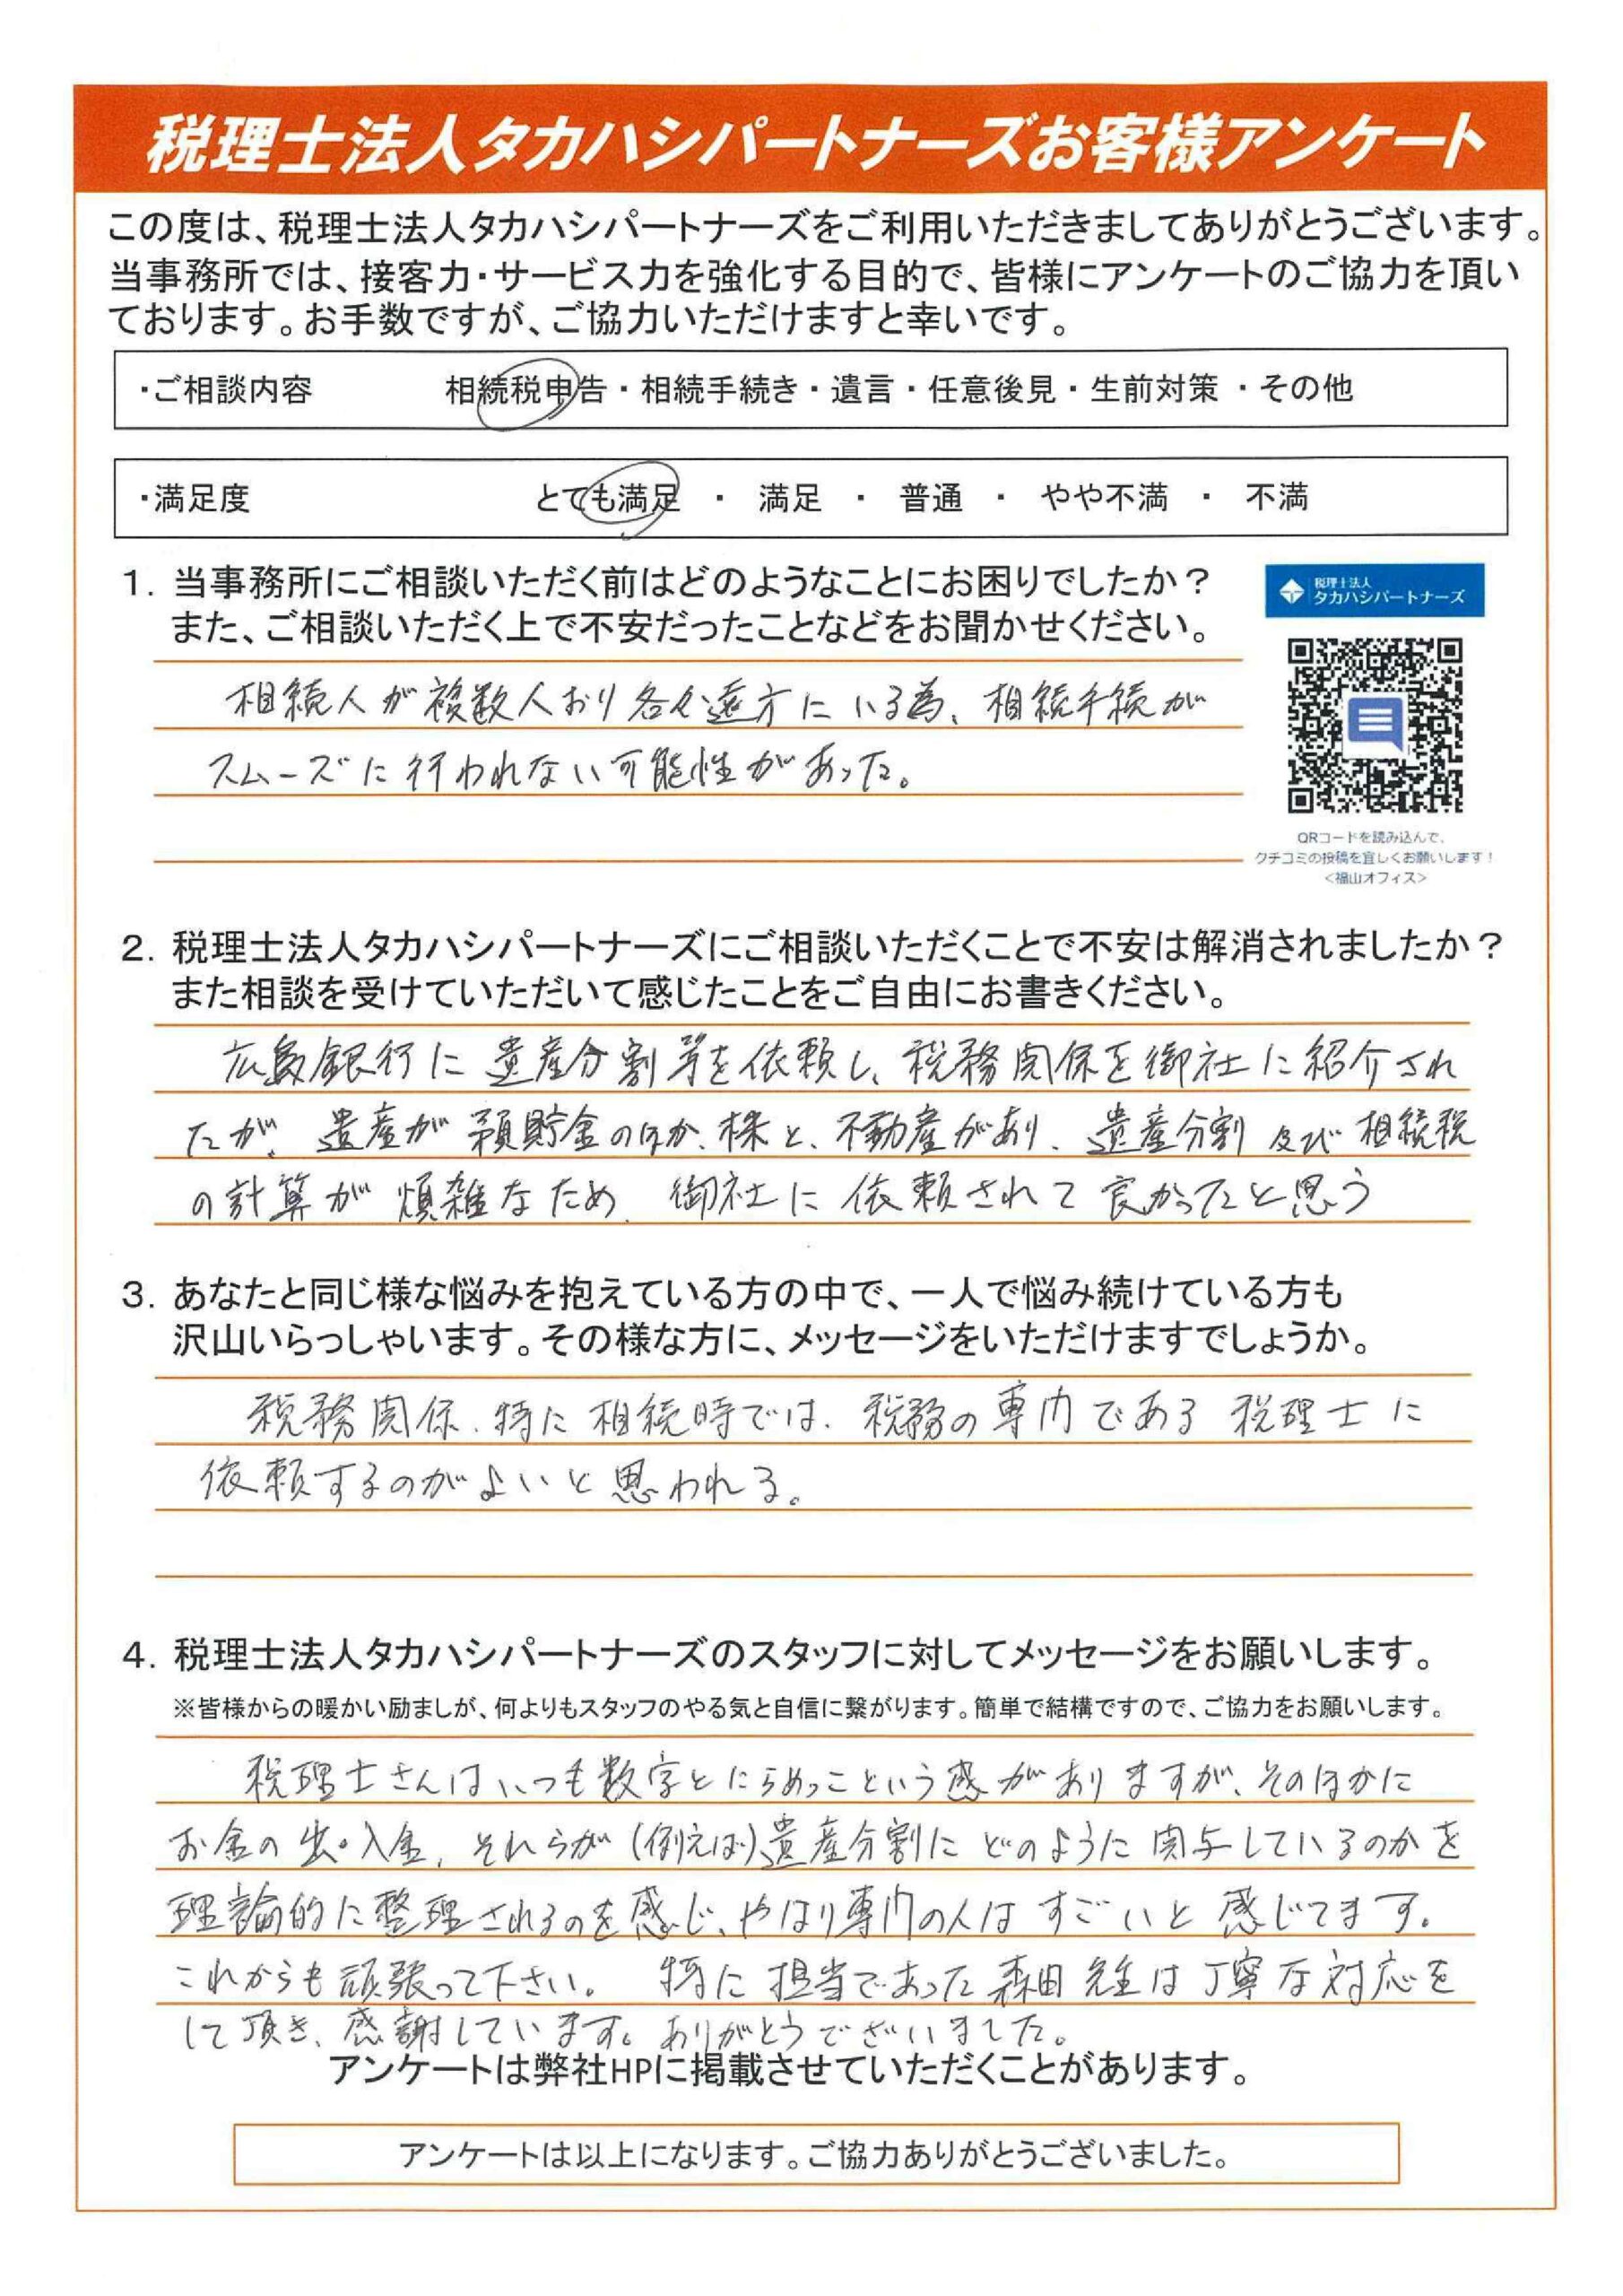 税理士法人タカハシパートナーズお客様アンケート
この度は、税理士法人タカハシパートナーズをご利用いただきましてありがとうございます。
当事務所では、接客力・サービス力を強化する目的で、皆様にアンケートのご協力を頂い
ております。お手数ですが、ご協力いただけますと幸いです。
・ご相談内容 相続税申告・相続手続き・遺言・任意後見・生前対策・その他
・満足度 とても満足 ・ 満足 ・ 普通 ・ やや不満 ・ 不満
1. 当事務所にご相談いただく前はどのようなことにお困りでしたか？
また、ご相談いただく上で不安だったことなどをお聞かせください。
税理士法人
タカハシパートナーズ
相続人が複数人おり各々遠方にいる為、相続手続が
スムーズに行われない可能性があった。
QRコードを読み込んで、
クチコミの投稿を宜しくお願いします！
＜福山オフィス＞
2. 税理士法人タカハシパートナーズにご相談いただくことで不安は解消されましたか？
また相談を受けていただいて感じたことをご自由にお書きください。
広島銀行に遺産分割等を依頼し、税務関係を御社に紹介され
たが、遺産が預貯金のほか、株と、不動産があり、遺産分割及び相続税
の計算が煩雑なため、御社に依頼されて良かったと思う
3. あなたと同じ様な悩みを抱えている方の中で、一人で悩み続けている方も
沢山いらっしゃいます。その様な方に、メッセージをいただけますでしょうか。
税務関係、特に相続時では、税務の専門である税理士に
依頼するのがよいと思われる。
4. 税理士法人タカハシパートナーズのスタッフに対してメッセージをお願いします。
※皆様からの暖かい励ましが、何よりもスタッフのやる気と自信に繋がります。簡単で結構ですので、ご協力をお願いします。
税理士さんはいつも数字とにらめっこという感がありますが、そのほかに
お金の出・入金、それらが(例えば)遺産分割にどのように関与しているのかを
理論的に整理されるのを感じ、やはり専門の人はすごいと感じてます。
これからも頑張って下さい。 特に担当であった森田先生は丁寧な対応を
して頂き、感謝しています。ありがとうございました。
アンケートは弊社HPに掲載させていただくことがあります。
アンケートは以上になります。ご協力ありがとうございました。